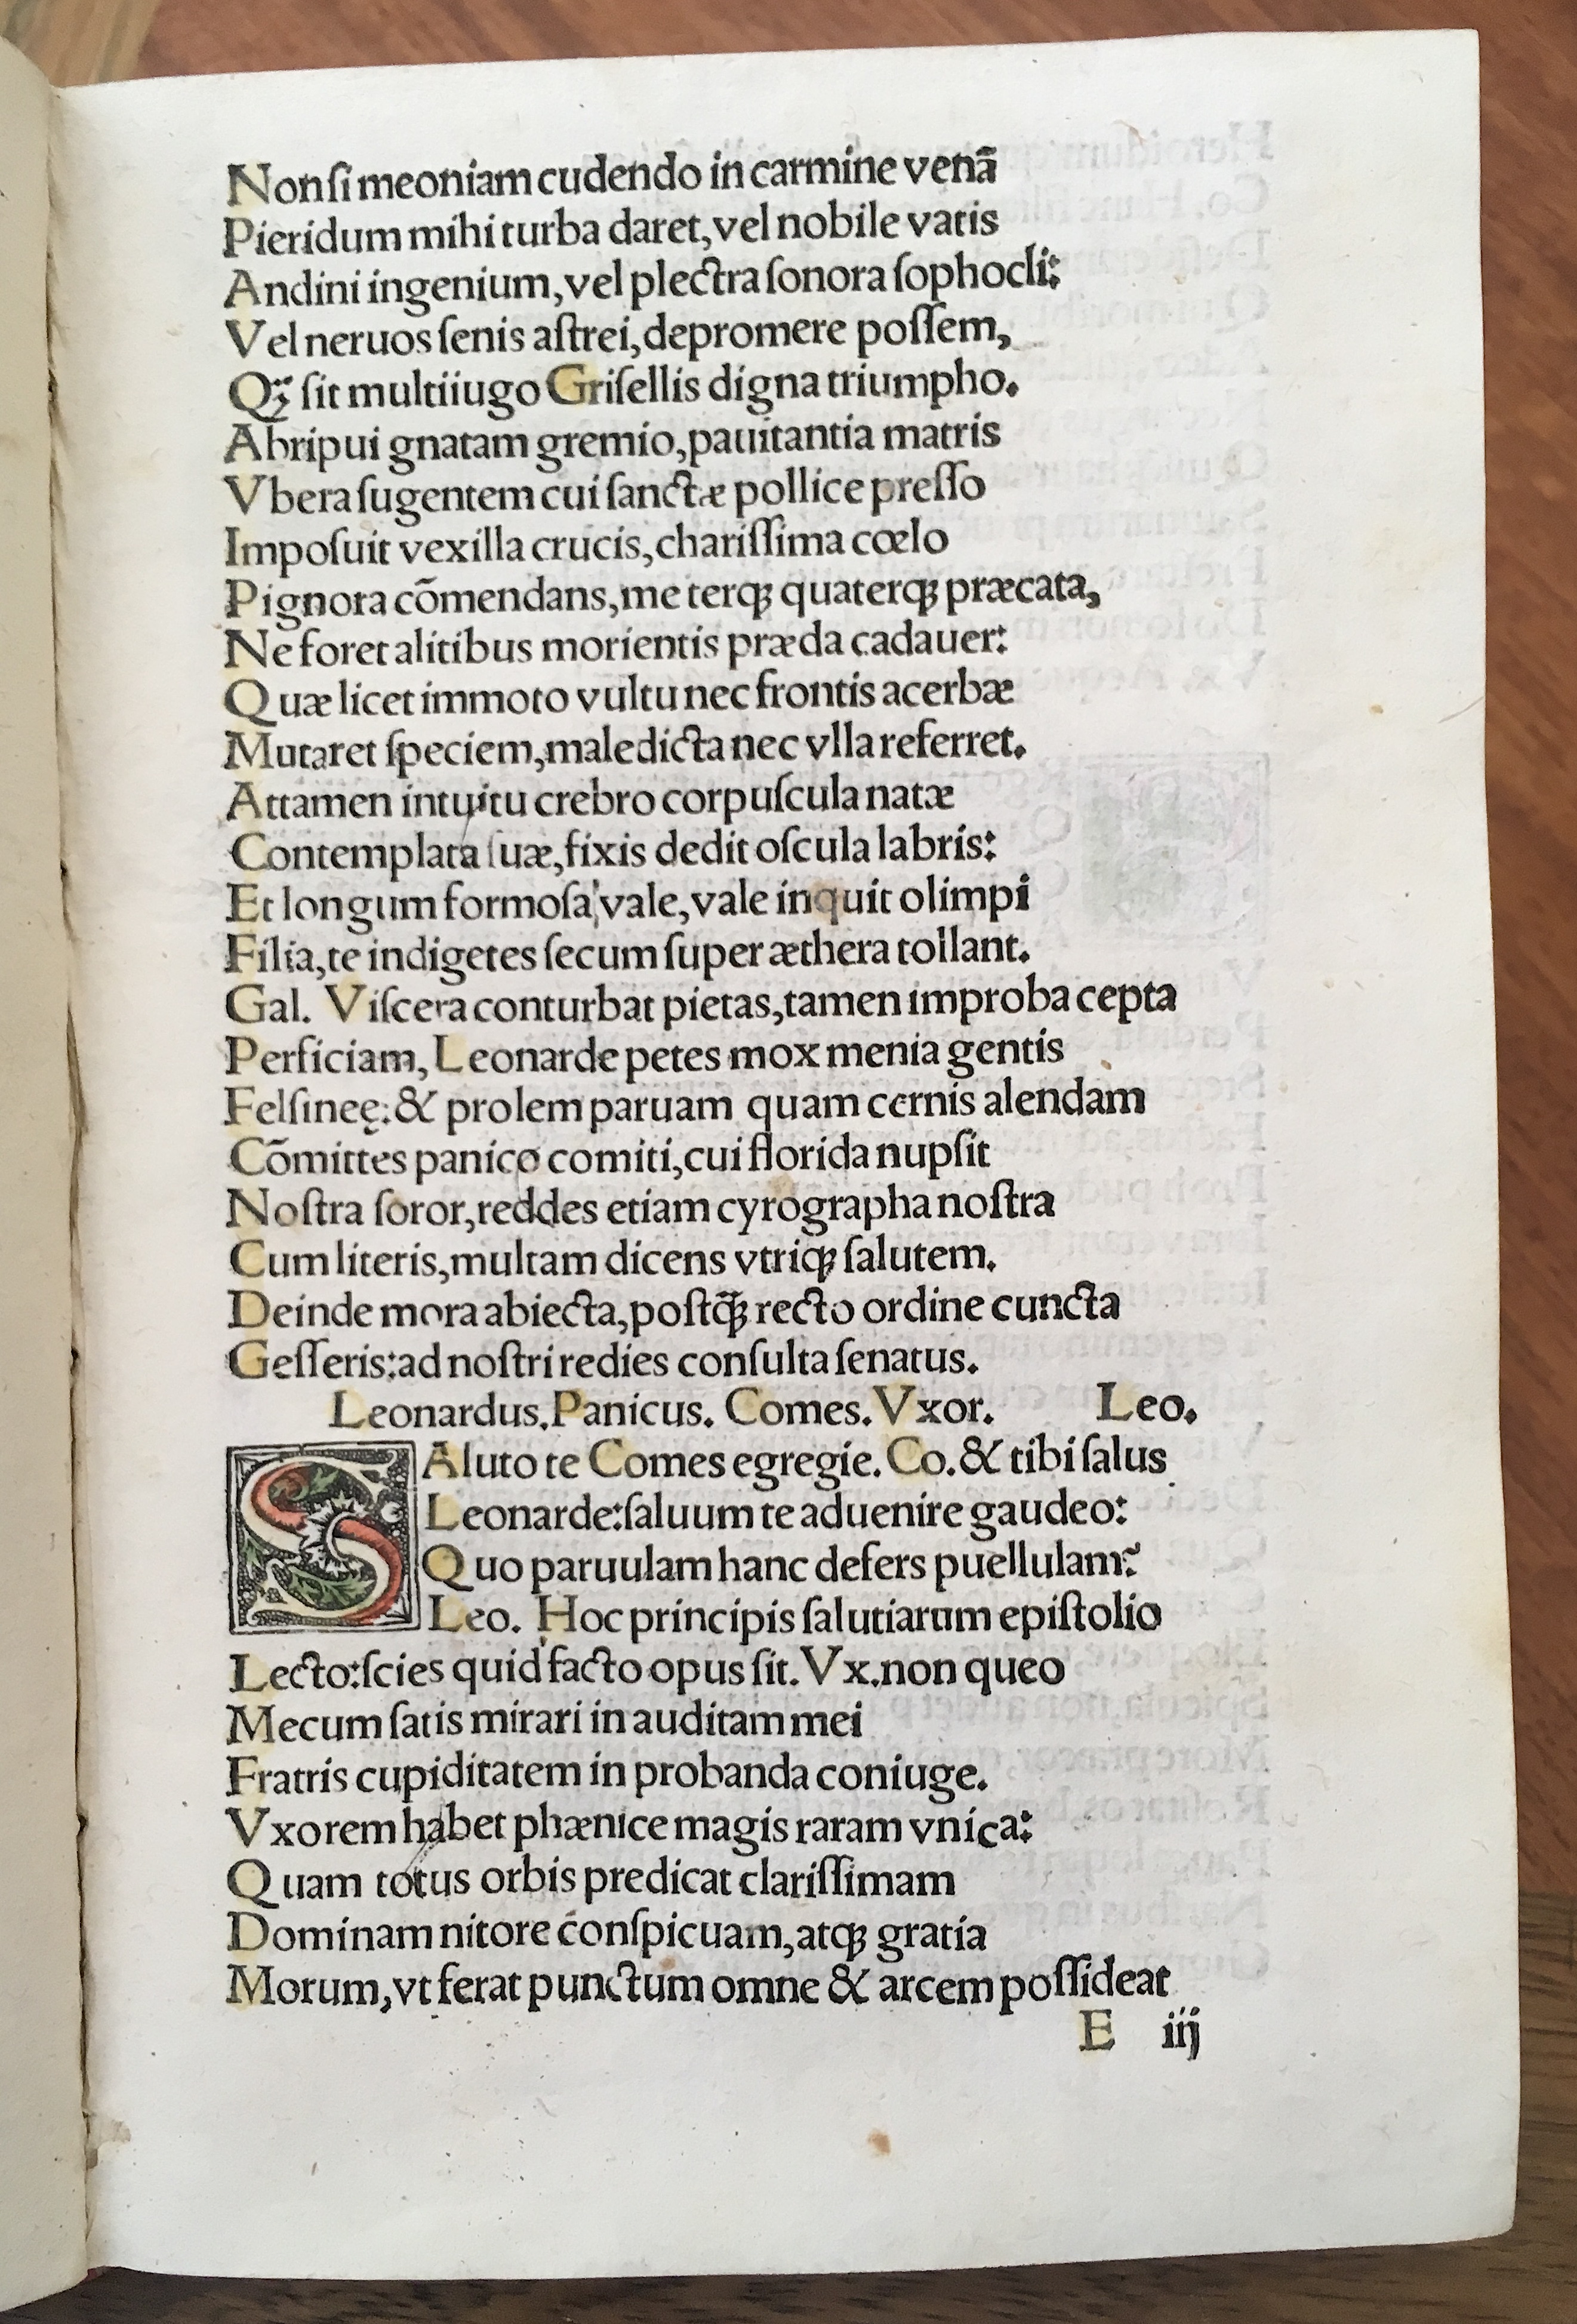 Non ſi meoniam cudendo in carmine venã
Pieridum mihi turba daret, vel nobile vatis
Andini ingenium, vel plectra ſonora ſophocli:
Vel neruos ſenis aſtrei, depromere poſſem,
Qꝫ ſit multiiugo Griſellis digna triumpho.
Abripui gnatam gremio, pauitantia matris
Vbera ſugentem cui ſanctæ pollice preſſo
Impoſuit vexilla crucis, chariſſima cœlo
Pignora cõmendans, me terqꝫ quaterqꝫ præcata,
Ne foret alitibus morientis præda cadauer:
Quæ licet immoto vultu nec frontis acerbæ
Mutaret ſpeciem, maledicta nec vlla referret.
Attamen intuitu crebro corpuſcula natæ
Contemplata ſuæ, fixis dedit oſcula labris:
Et longum formoſa vale, vale inquit olimpi
Filia, te indigetes ſecum ſuper æthera tollant.
Gal. Viſcera conturbat pietas, tamen improba cepta
Perficiam, Leonarde petes mox menia gentis
Felſineę: & prolem paruam quam cernis alendam
Cõmittes panico comiti, cui florida nupſit
Noſtra ſoror, reddes etiam cyrographa noſtra
Cum literis, multam dicens vtriqꝫ ſalutem.
Deinde mora abiecta, poſtq̃ꝫ recto ordine cuncta
Geſſeris: ad noſtri redies conſulta ſenatus.
Leonardus. Panicus. Comes. Vxor. Leo.
SAluto te Comes egregie. Co. & tibi ſalus
Leonarde: ſaluum te aduenire gaudeo:
Quo paruulam hanc defers puellulam?
Leo. Hoc principis ſalutiarum epiſtolio
Lecto: ſcies quid facto opus ſit. Vx. non queo
Mecum ſatis mirari in auditam mei
Fratris cupiditatem in probanda coniuge.
Vxorem habet phænice magis raram vnica:
Quam totus orbis predicat clariſſimam
Dominam nitore conſpicuam, atqꝫ gratia
Morum, vt ferat punctum omne & arcem poſſideat
E iij